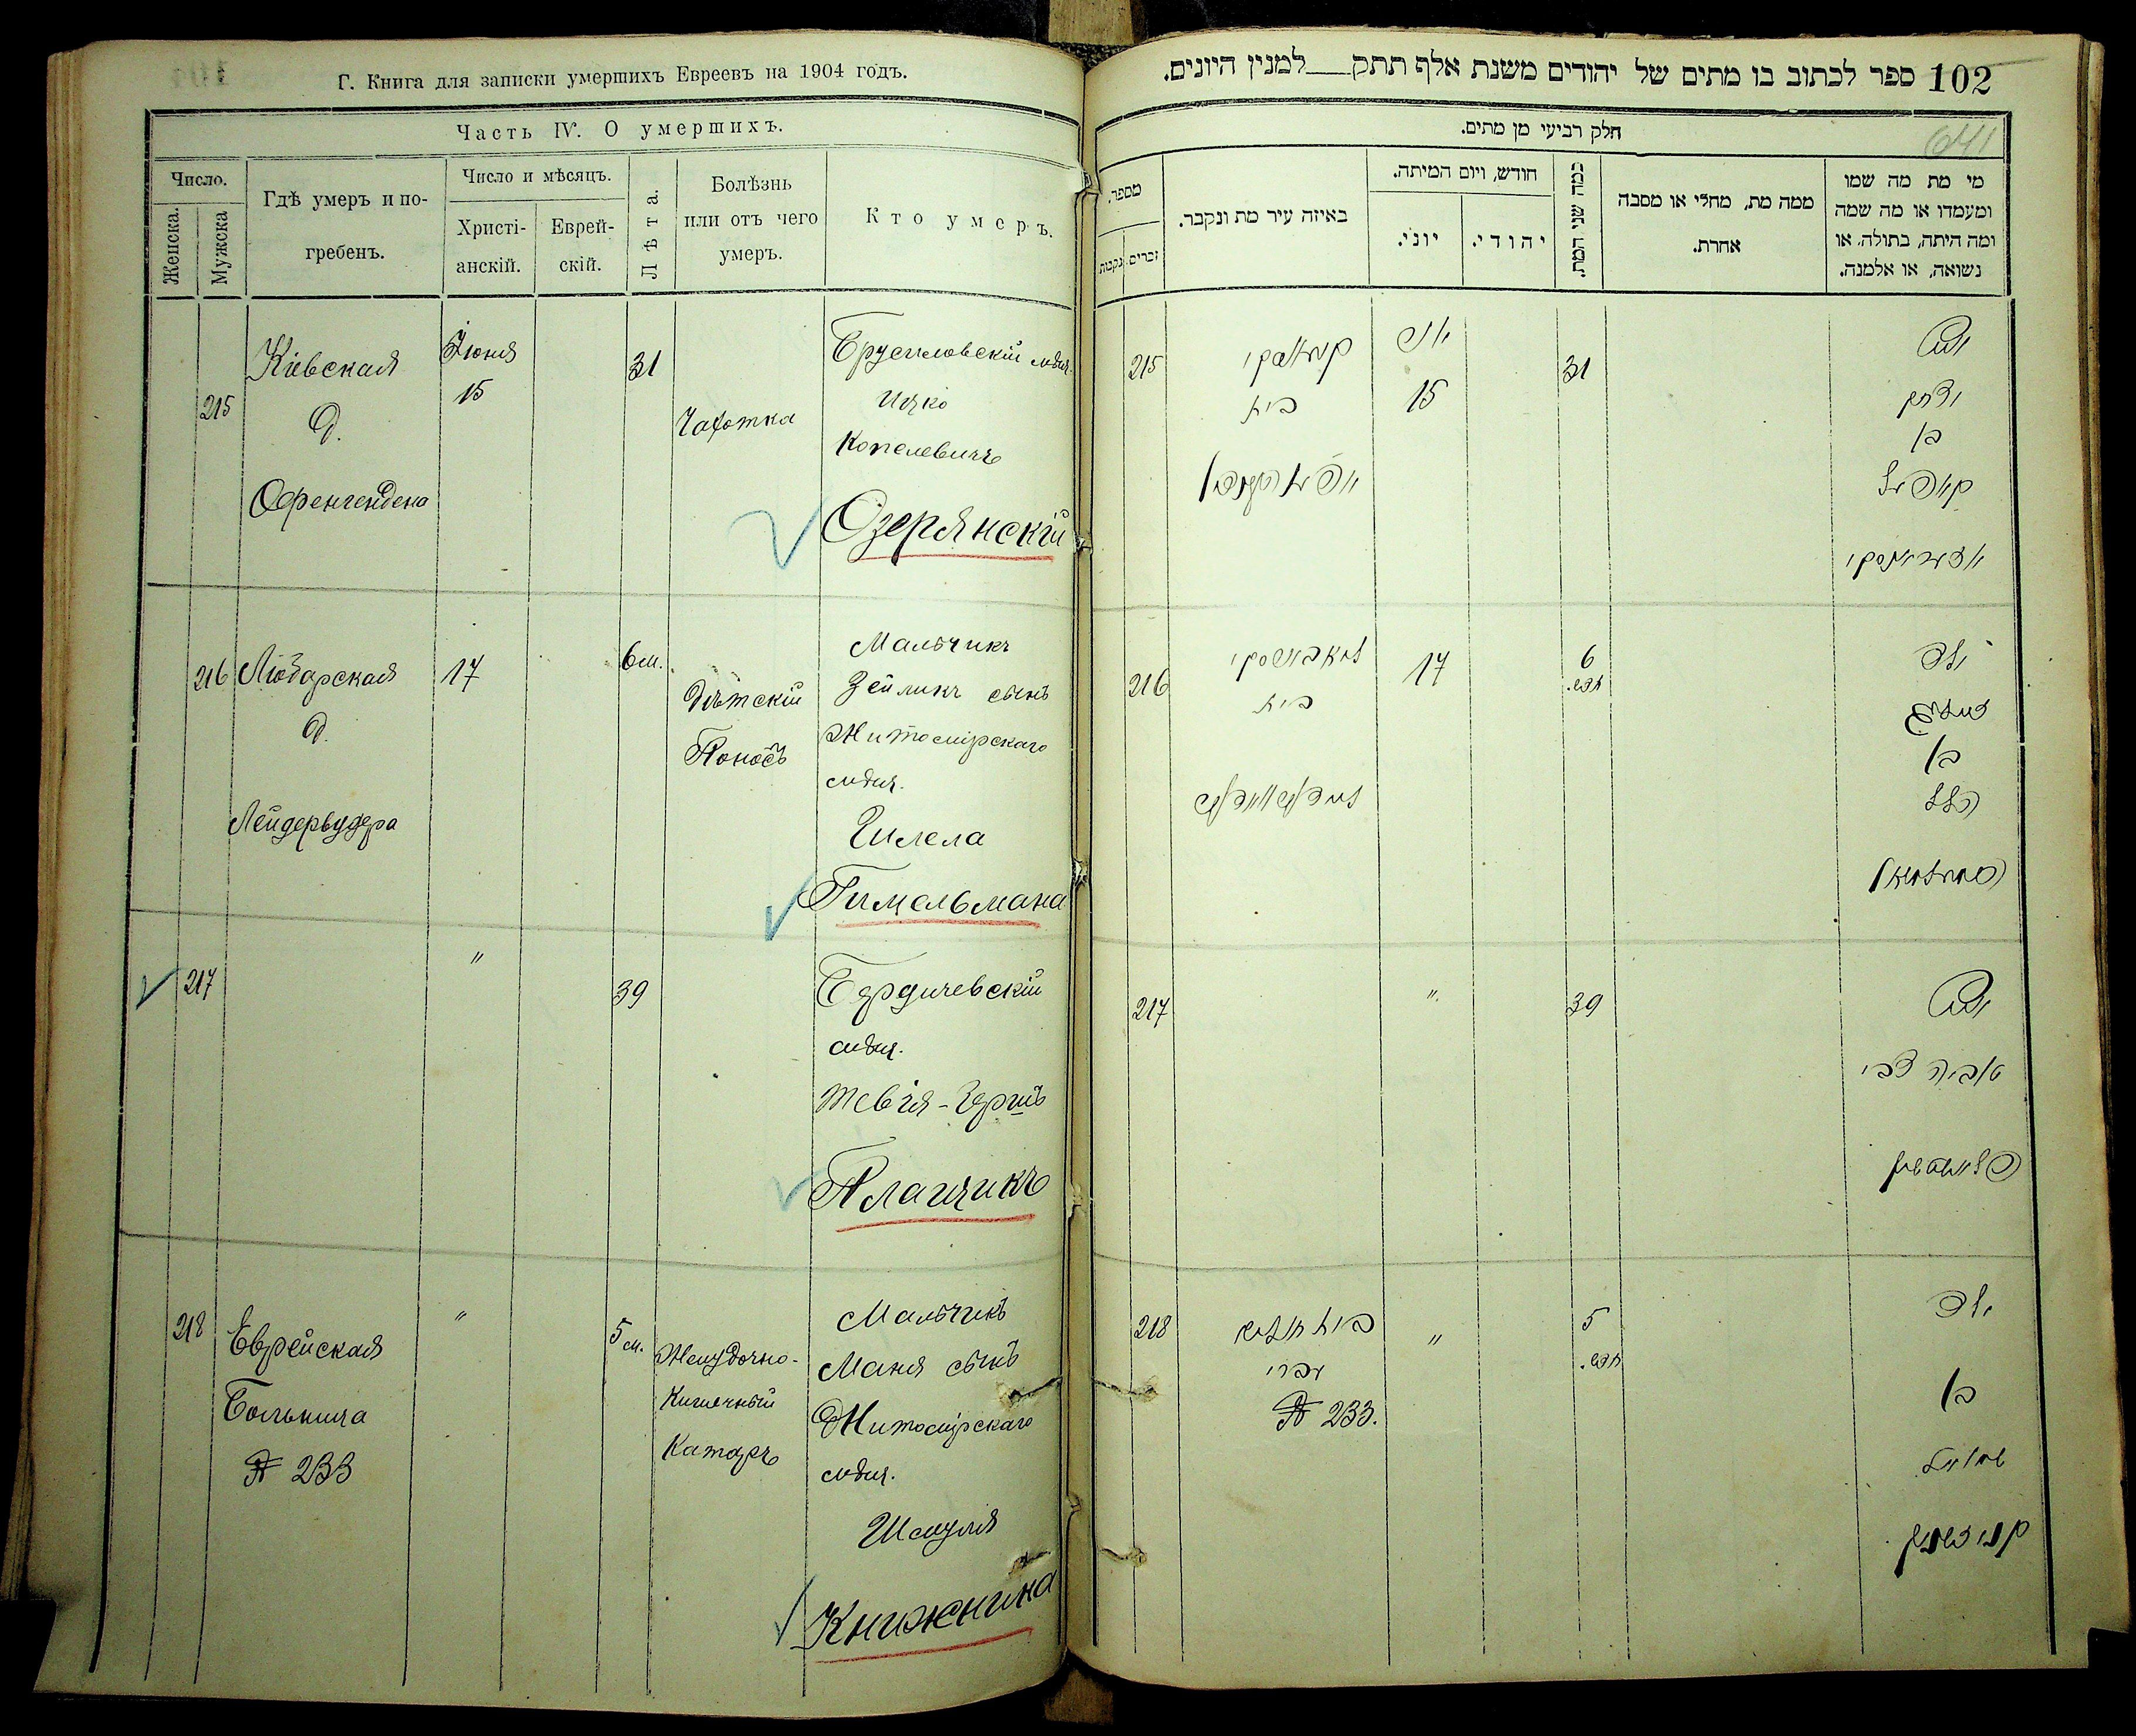 Г. Книга для записки умершихъ Евреевъ на 1904 годъ.
Часть IV. О умершихъ.
Число.
Женска.
Мужска
Гдѣ умеръ и по-
гребенъ.
Число и мѣсяцъ.
Христі-
анскій.
Еврей-
скій.
Лѣта.
Болѣзнь
или отъ чего
умеръ.
Кто умеръ.
215
Кіевская
д.
Офенгендена
Іюня
15
31
Чахотка
Брусиловскій мѣщ.
Ицко
Копелевичъ
Озерянскій
216
Любарская
д.
17
6 м.
Дѣтскій
Поносъ
Мальчикъ
Зейликъ сынъ
Житомірскаго
мѣщ.
Гилела
Гимельмана
217
"
39
Бердичевскій
мѣщ.
Тевія-Гершъ
Планчикъ
218
Еврейская
Больница
№ 233
"
5 м.
Желудочно-
Кишечный
Катарръ
Мальчикъ
Маня сынъ
Житомірскаго
мѣщ.
Шмуля
Книжника
102 ספר לכתוב בו מתים של יהודים משנת אלף תתק___למנין היונים.
חלק רביעי מן מתים.
641
מספר.
זכרים.
נקבות
באיזה עיר מת ונקבר.
חודש, ויום המיתה.
יוני.
יהודי.
כמה שני המת.
ממה מת, מחלי או מסבה
אחרת.
מי מת מה שמו
ומעמדו או מה שמה
ומה היתה, בתולה, או
נשואה, או אלמנה.
215
בית
15
31
איש
יצחק
בן
קאפיל
216
בית
17
6
חדש.
ילד
בן
הלל
217
"
39
איש
טוביה צבי
218
בית חולים
עברי
№ 233.
"
5
חדש.
ילד
בן
שמואל